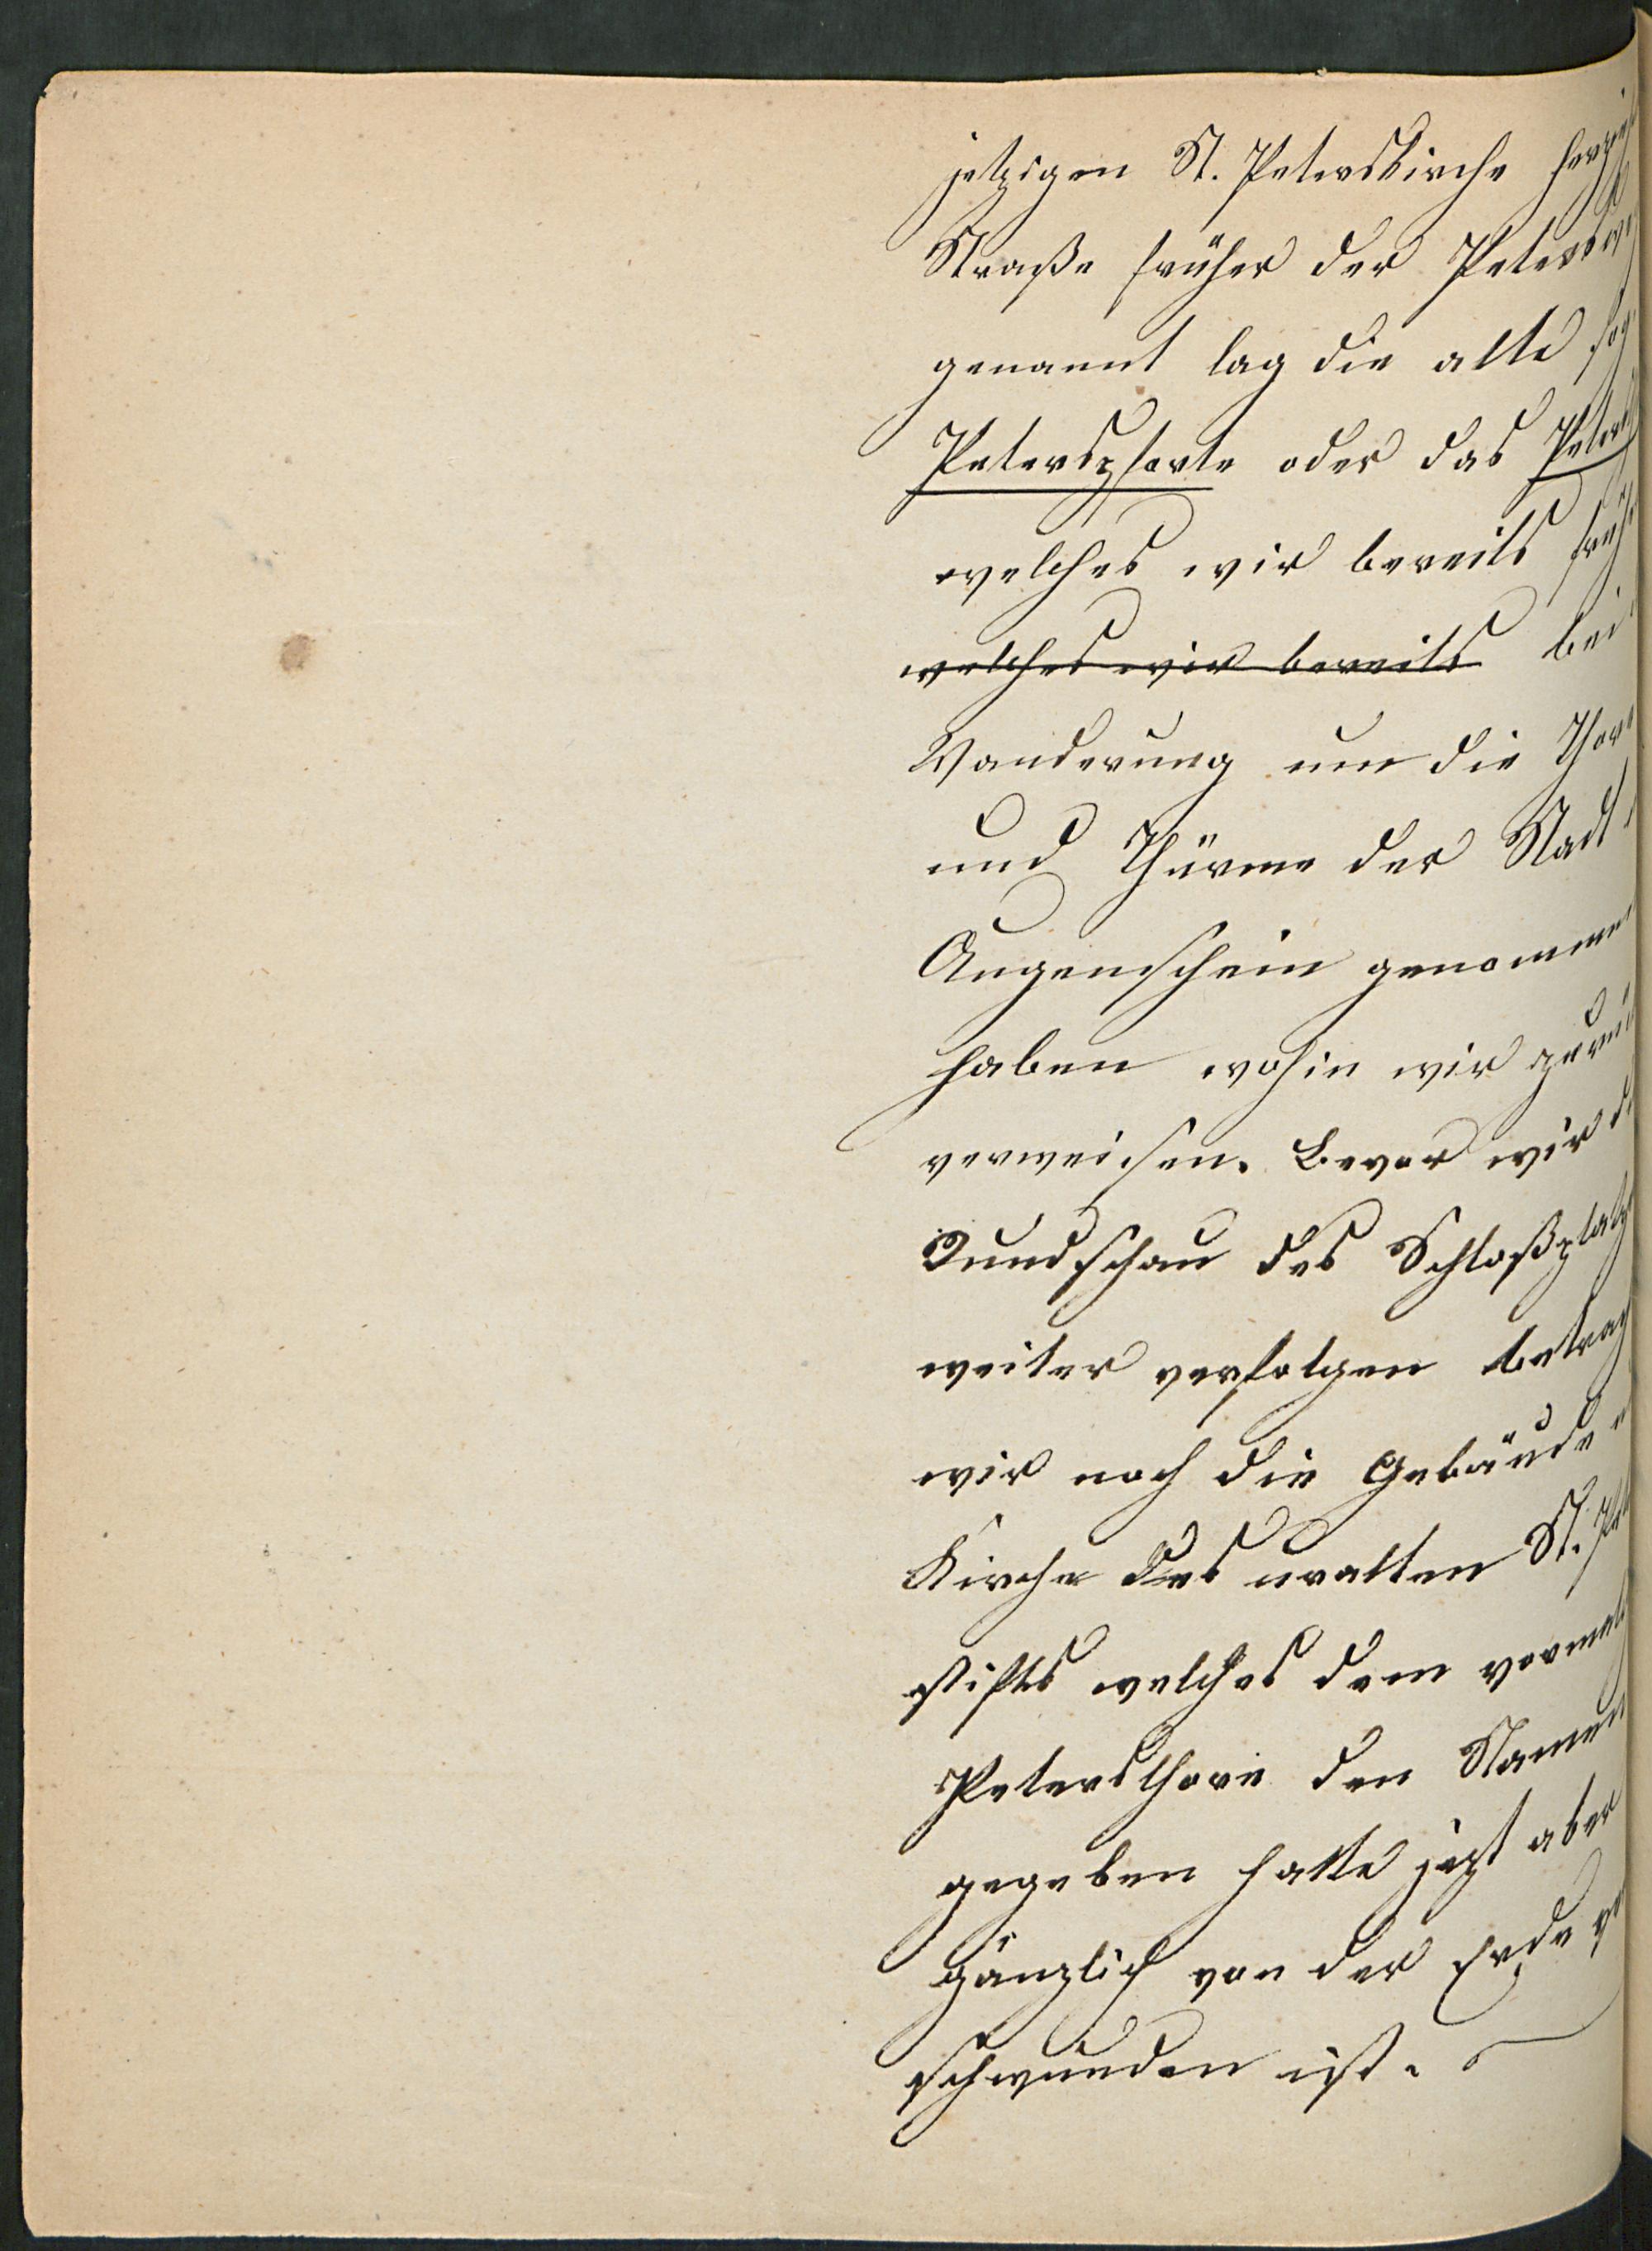 jetzigen St. Peterskirche herzie
Straße früher der Petersw
genannt lag die alte sog
Peterspforte oder das Peters
welches wir bereits früh
welches wir bereits bei
Wanderung um die Thore
und Thürme der Stadt
Augenschein genomme
haben wohin wir zurü
verweisen. Bevor wir d
Rundschau des Schloßplatz
weiter verfolgen betrag
wir noch die Gebäude
Kirche des uralten St. Pet
stifts welches dem vormal
Petersthore den Namen
gegeben hatte jezt aber
gänzlich von der Erde ve
schwunden ist.